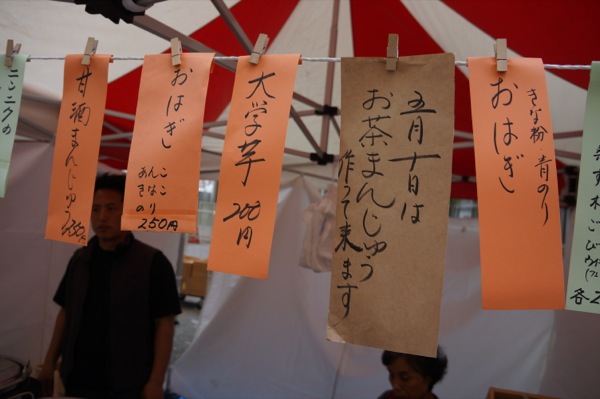 ニンニクの
甘酒まんじゅう
250円
おはぎ
ここ
んはり
あきの
250円
大学芋
200円
五月十日は
お茶まんじゅう
作って来ます
きな粉 青のり
おはぎ
ごぼう
各2